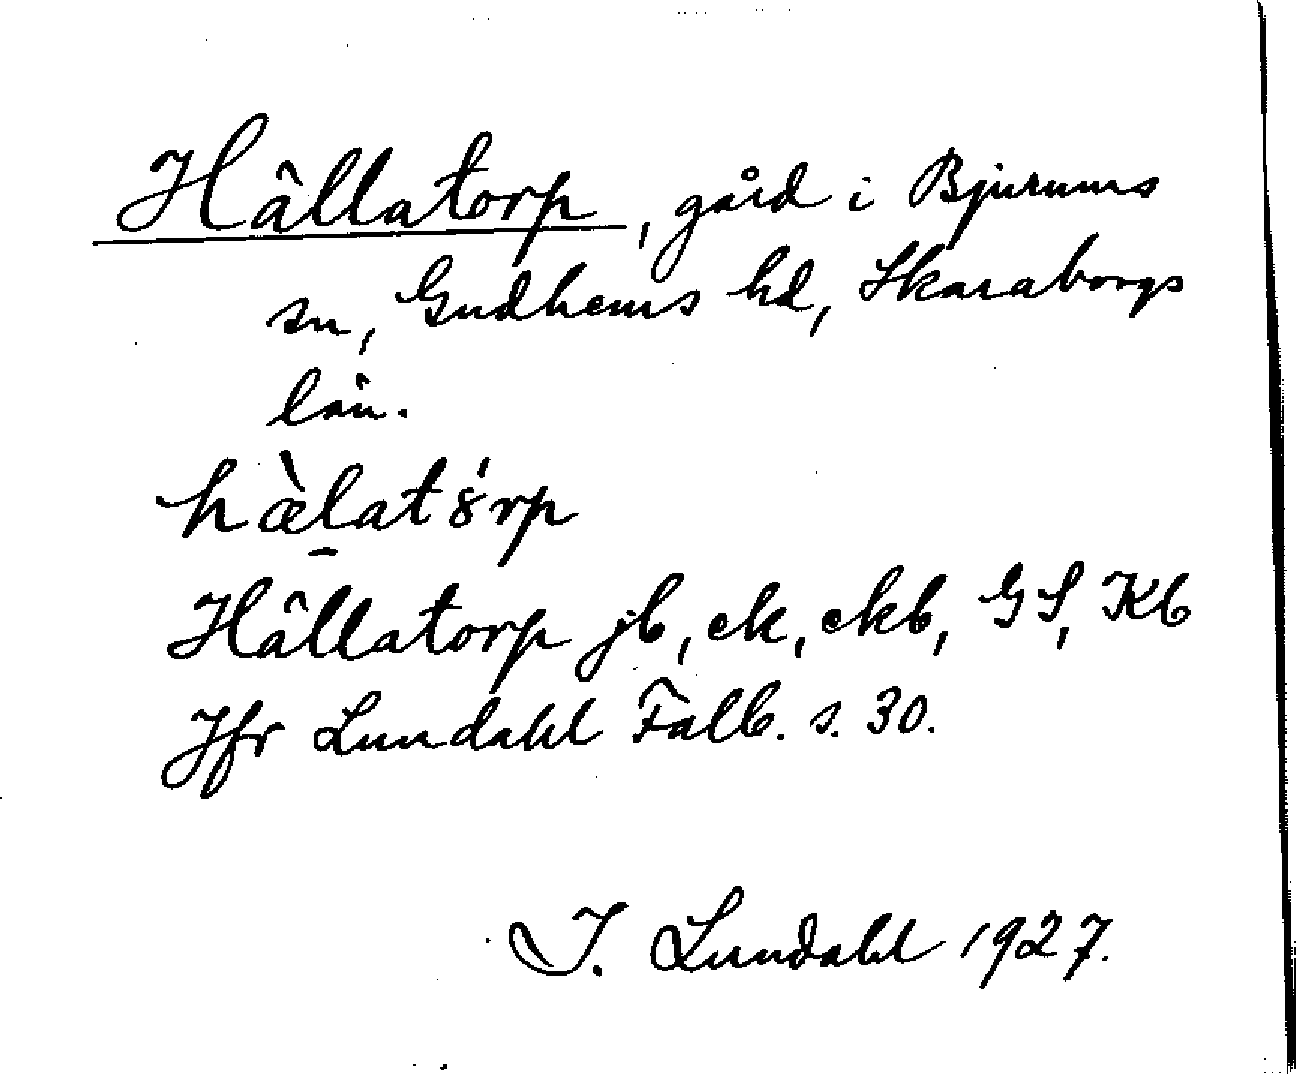 Hällatorp, gård i Bjurums
sn, Gudhems hd, Skaraborgs
län.
hæ̀lat8́rp
Hällatorp jb, ek, ekb, GS, Kb
Jfr Lundahl Falb. s. 30.
I. Lundahl 1927.